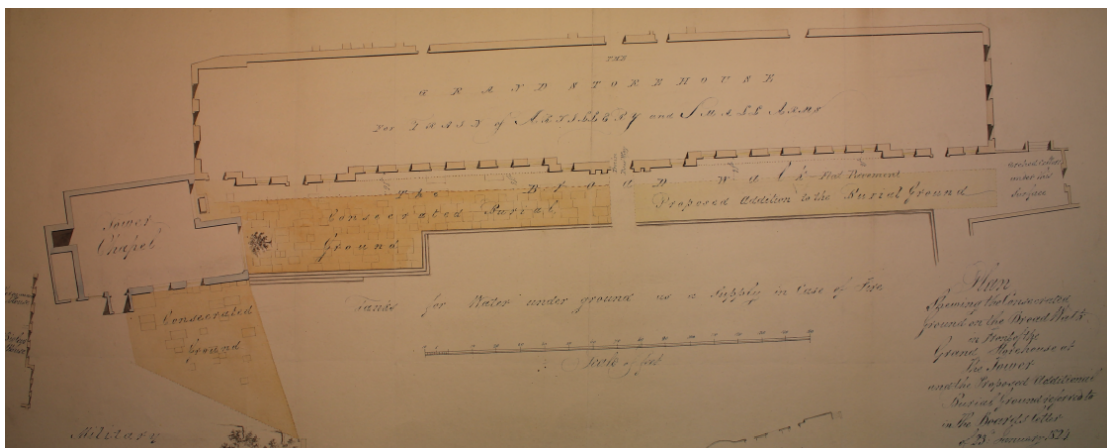 THE
GRAND STOREHOUSE
For TRAIN of ARTILLERY and SMALL ARMS
The Broad Walk Flat Pavement
Consecrated Burial
Ground
Proposed Addition to the Burial Ground
Surface
Tower
Chapel
Consecrated
Ground
Tanks for Water under ground as a Supply in Case of Fire
Scale of feet
Military
Plan
Shewing the Consecrated
Ground on the Broad Walk
in Front of the
Grand Storehouse at
The Tower
and the Proposed Additional
Burial Ground
in the Board's letter
of 23 January